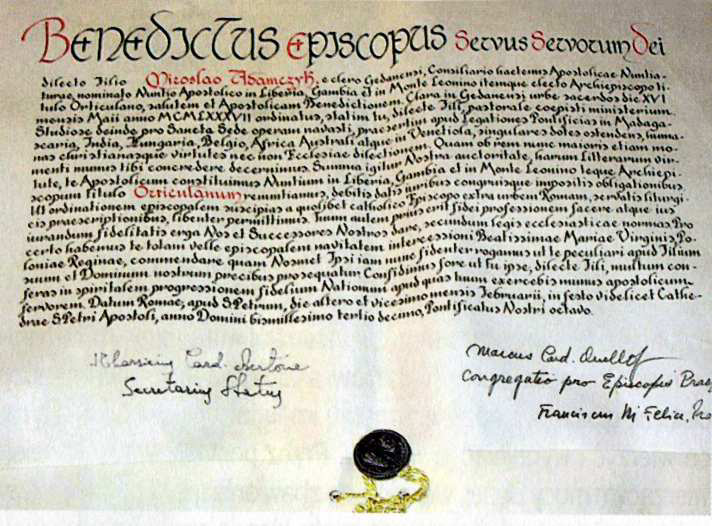 BENEDICTUS EPISCOPUS Servus Servorum Dei
dilecto Filio Miroslao Adamczyk, e clero Gedanensi, Consiliario hactenus Apostolicae Nuntia-
turae, nominato Nuntio Apostolico in Liberia, Gambia et in Monte Leonino itemque electo Archiepiscopo ti-
tulo Orticulano, salutem et Apostolicam Benedictionem. Clara in Gedanensi urbe sacerdos die XVI
mensis Maii anno MCMLXXXVII ordinatus, statim tu, dilecte Fili, pastorale coepisti ministerium.
Studiose deinde pro Sancta Sede operam navasti, praesertim apud Legationes Pontificias in Madaga-
scaria, India, Hungaria, Belgio, Africa Australi atque in Venetiola, singulares dotes ostendens, huma-
nas christianasque virtutes nec non Ecclesiae dilectionem. Quam ob rem nunc maioris etiam mo-
menti munus tibi concredere decernimus. Summa igitur Nostra auctoritate, harum Litterarum vir-
tute, te Apostolicum constituimus Nuntium in Liberia, Gambia et in Monte Leonino teque Archiepi-
scopum titulo Orticulanum renuntiamus, debitis datis iuribus congruisque impositis obligationibus.
Ut ordinationem episcopalem suscipias a quolibet catholico Episcopo extra urbem Romam, servatis liturgi-
cis praescriptionibus, libenter permittimus. Tuum autem prius erit fidei professionem facere atque ius
iurandum fidelitatis erga Nos et Successores Nostros dare, secundum legis ecclesiasticae normas. Pro
certo habemus te totam velle episcopalem navitatem intercessioni Beatissimae Mariae Virginis, Po-
loniae Reginae, commendare quam Nosmet Ipsi iam nunc fidenter rogamus ut te peculiari apud Filium
suum et Dominum nostrum precibus prosequatur. Confidimus fore ut tu ipse, dilecte Fili, multum con-
feras in spiritalem progressionem fidelium Nationum apud quas tuum exercebis munus apostolicum.
fervorem. Datum Romae, apud S. Petrum, die altero et vicesimo mensis Februarii, in festo videlicet Cathe-
drae S. Petri Apostoli, anno Domini bismillesimo tertio decimo, Pontificatus Nostri octavo.
Tharsicius Card. Bertone
Secretarius Status
Marcus Card. Ouellet
Congregatio pro Episcopis Praef
Franciscus M. Felice, Pro